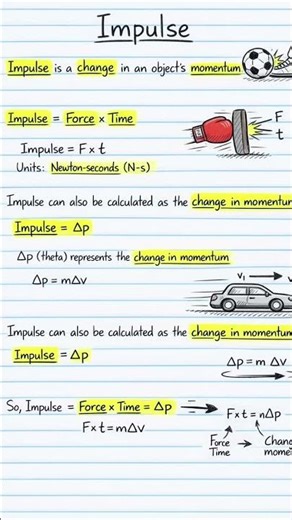 Impulse
Impulse is a change in an object's momentum
Impulse = Force x Time
F
t
Impulse = F x t
Units: Newton-seconds (N-s)
Impulse can also be calculated as the change in momentum
Impulse = Δp
Δp (theta) represents the change in momentum
Δp = mΔv
v₁
Impulse can also be calculated as the change in momentum
Impulse = Δp
Δp = m Δv
So, Impulse = Force x Time = Δp
F x t = nΔp
F x t = mΔv
Force
Time